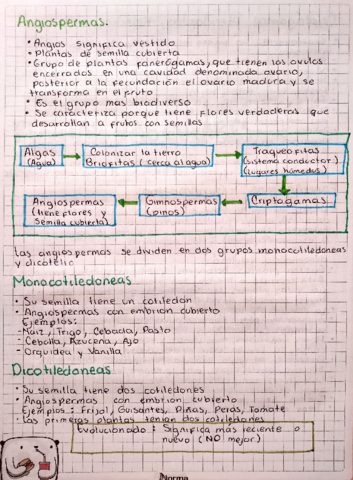 Angiospermas.
• Angios significa vestido
• Plantas de semilla cubierta
• Grupo de plantas fanerógamas, que tienen los ovulos
encerrados en una cavidad denominada ovario,
posterior a la fecundación el ovario madura y se
transforma en el fruto
• Es el grupo mas biodiverso
• Se caracteriza porque tiene flores verdaderas que
desarrollan a frutos con semillas
Algas
(Agua)
Colonizar la tierra
Briofitas (cerca al agua)
Traqueofitas
(sistema conductor)
(lugares húmedos)
Angiospermas
(tiene flores y
Semilla cubierta)
Gimnospermas
(pinos)
Criptogamas
Las angiospermas se dividen en dos grupos monocotiledoneas
y dicotile
Monocotiledoneas
• Su semilla tiene un cotiledon
• Angiospermas con embrion cubierto
Ejemplos:
-Maiz, Trigo, Cebada, Pasto
- Cebolla, Azucena, Ajo
- Orquidea y Vanilla
Dicotiledoneas
• Su semilla tiene dos cotiledones
• Angiospermas con embrion cubierto
Ejemplos: Frijol, Guisantes, Piñas, Peras, Tomate
• Las primeras plantas tenian dos cotiledones
Evolucionado: Significa más reciente o
nuevo (NO mejor)
Norma